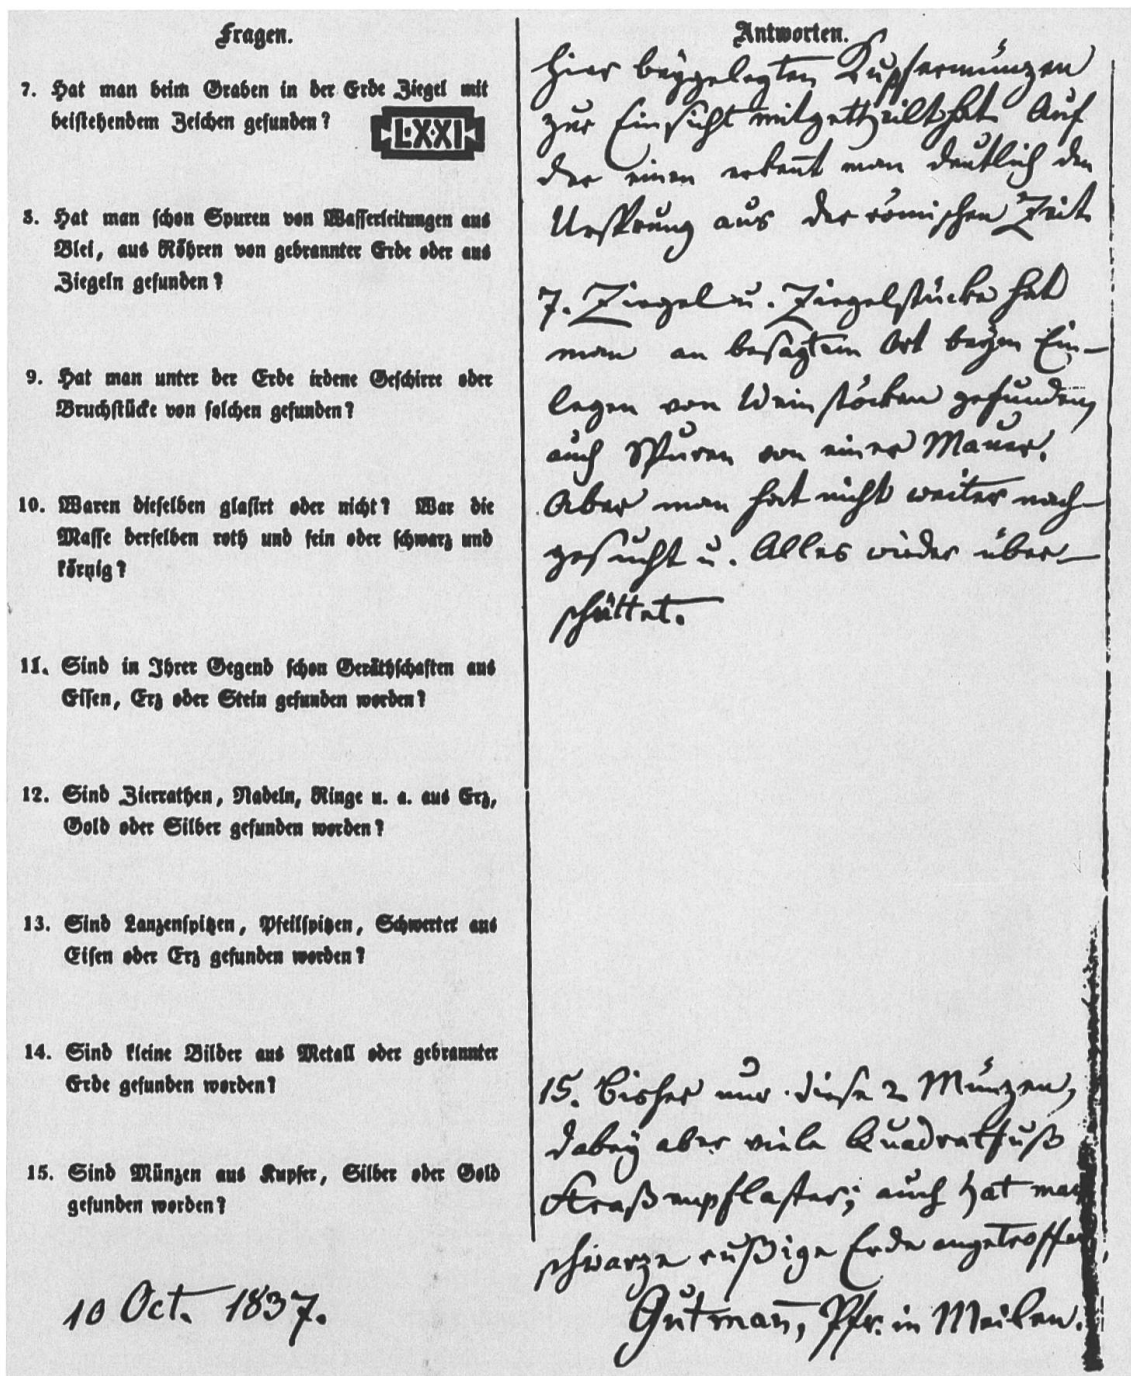 Fragen.
7. Hat man beim Graben in der Erde Ziegel mit
beistehendem Zeichen gefunden?
L·XXI
8. Hat man schon Spuren von Wasserleitungen aus
Blei, aus Röhren von gebrannter Erde oder aus
Ziegeln gefunden?
9. Hat man unter der Erde irdene Geschirre oder
Bruchstücke von solchen gefunden?
10. Waren dieselben glasirt oder nicht? War die
Masse derselben roth und fein oder schwarz und
körnig?
11. Sind in Ihrer Gegend schon Geräthschaften aus
Eisen, Erz oder Stein gefunden worden?
12. Sind Zierrathen, Nadeln, Ringe u. a. aus Erz,
Gold oder Silber gefunden worden?
13. Sind Lanzenspitzen, Pfeilspitzen, Schwerter aus
Eisen oder Erz gefunden worden?
14. Sind kleine Bilder aus Metall oder gebrannter
Erde gefunden worden?
15. Sind Münzen aus Kupfer, Silber oder Gold
gefunden worden?
10 Oct. 1837.
Antworten.
hier beygelegten Kupfermünzen
zur Einsicht mitgetheilt hat. Auf
der einen erkent man deutlich den
Ursprung aus der römischen Zeit.
7. Ziegel u. Ziegelstücke hat
man an besagtem Ort beym Ein-
legen von Weinstöcken gefunden,
auch Spuren von einer Mauer.
Aber man hat nicht weiter nach-
gesucht u. Alles wieder über-
schüttet.
15. Bisher nur diese 2 Münzen,
dabey aber viele Quadratfuß
Straßenpflaster; auch hat man
schwarze rußige Erde angetroffen,
Gutmañ, Pfr. in Meilen.